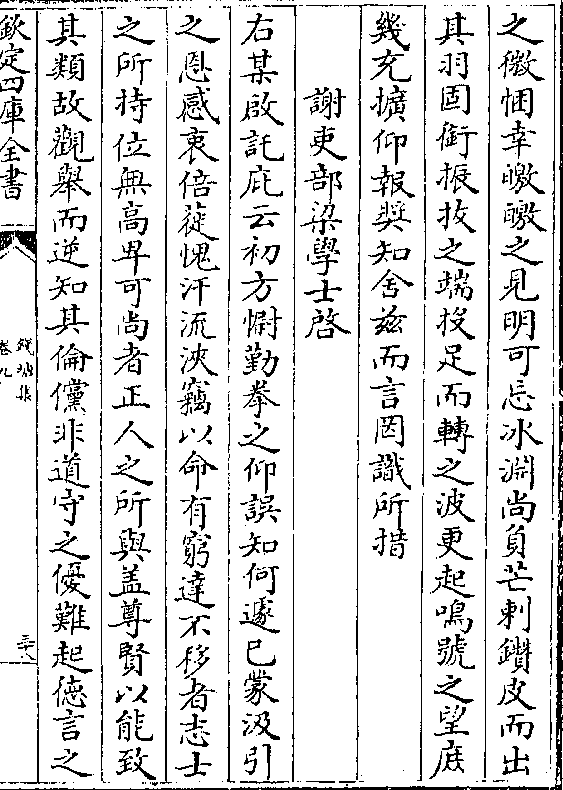 之微悃幸皦皦之見明可忘冰淵尚負芒刺鑽皮而出
其羽固銜振拔之端投足而轉之波更起鳴號之望庶
幾充擴仰報奬知舍兹而言罔識所措
謝吏部梁學士啓
右某啟託庇云初方懈勤拳之仰誤知何遽已蒙汲引
之恩感衷倍蓰愧汗流浹竊以命有窮達不移者志士
之所持位無高卑可尚者正人之所與盖尊賢以能致
其類故觀舉而逆知其倫儻非道守之優難起徳言之
欽定四庫全書
錢塘集
卷九
三十八